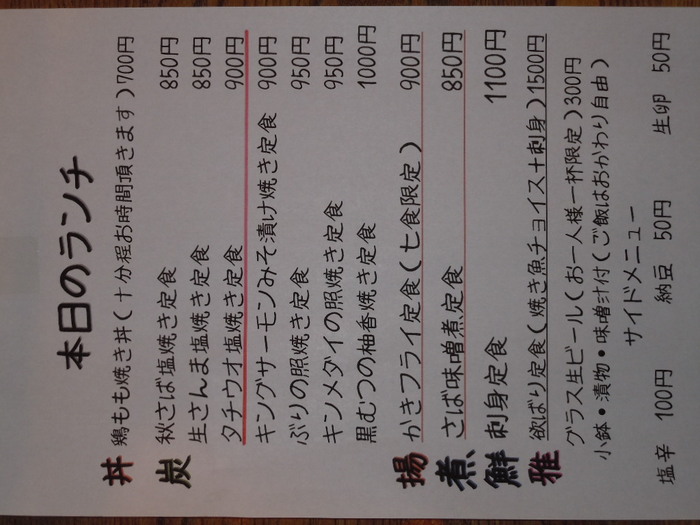 本日のランチ
丼 鶏もも焼き丼(十分程お時間頂きます)700円
炭 秋さば塩焼き定食 850円
生さんま塩焼き定食 850円
タチウオ塩焼き定食 900円
キングサーモンみそ漬け焼き定食 900円
ぶりの照焼き定食 950円
キンメダイの照焼き定食 950円
黒むつの柚香焼き定食 1000円
揚 かきフライ定食(七食限定) 900円
煮 さば味噌煮定食 850円
鮮 刺身定食 1100円
雅 欲ばり定食(焼き魚チョイス+刺身)1500円
グラス生ビール(お一人様一杯限定)300円
小鉢・漬物・味噌汁付(ご飯はおかわり自由)
サイドメニュー
塩辛 100円 納豆 50円 生卵 50円